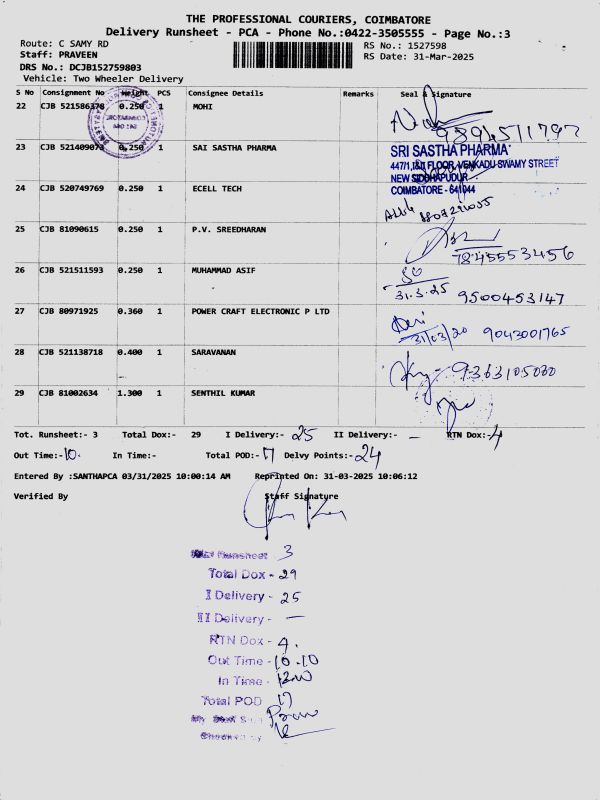 THE PROFESSIONAL COURIERS, COIMBATORE
Delivery Runsheet - PCA - Phone No.:0422-3505555 - Page No.:3
Route: C SAMY RD RS No.: 1527598
Staff: PRAVEEN RS Date: 31-Mar-2025
DRS No.: DCJB152759803
Vehicle: Two Wheeler Delivery
S No Consignment No Weight PCS Consignee Details Remarks Seal & Signature
22 CJB 521586378 0.250 1 MOHI
9894511797
23 CJB 521409073 0.250 1 SAI SASTHA PHARMA SRI SASTHA PHARMA
447/1, I&II FLOOR, VENKADU SWAMY STREET
NEW SIDDHAPUDUR
24 CJB 520749769 0.250 1 ECELL TECH COIMBATORE - 641044
25 CJB 81090615 0.250 1 P.V. SREEDHARAN
7845553456
26 CJB 521511593 0.250 1 MUHAMMAD ASIF
31.3.25 9500453147
27 CJB 80971925 0.360 1 POWER CRAFT ELECTRONIC P LTD
31/03/20 9043001765
28 CJB 521138718 0.400 1 SARAVANAN
9363105080
29 CJB 81002634 1.300 1 SENTHIL KUMAR
Tot. Runsheet:- 3 Total Dox:- 29 I Delivery:- 25 II Delivery:- - RTN Dox:- 4
Out Time:-10. In Time:- Total POD:- 17 Delvy Points:- 24
Entered By :SANTHAPCA 03/31/2025 10:00:14 AM Reprinted On: 31-03-2025 10:06:12
Verified By Staff Signature
Runsheet 3
Total Dox - 29
I Delivery - 25
II Delivery - -
RTN Dox - 4.
Out Time - 10.10
In Time - 1200
Total POD 17
Checked by